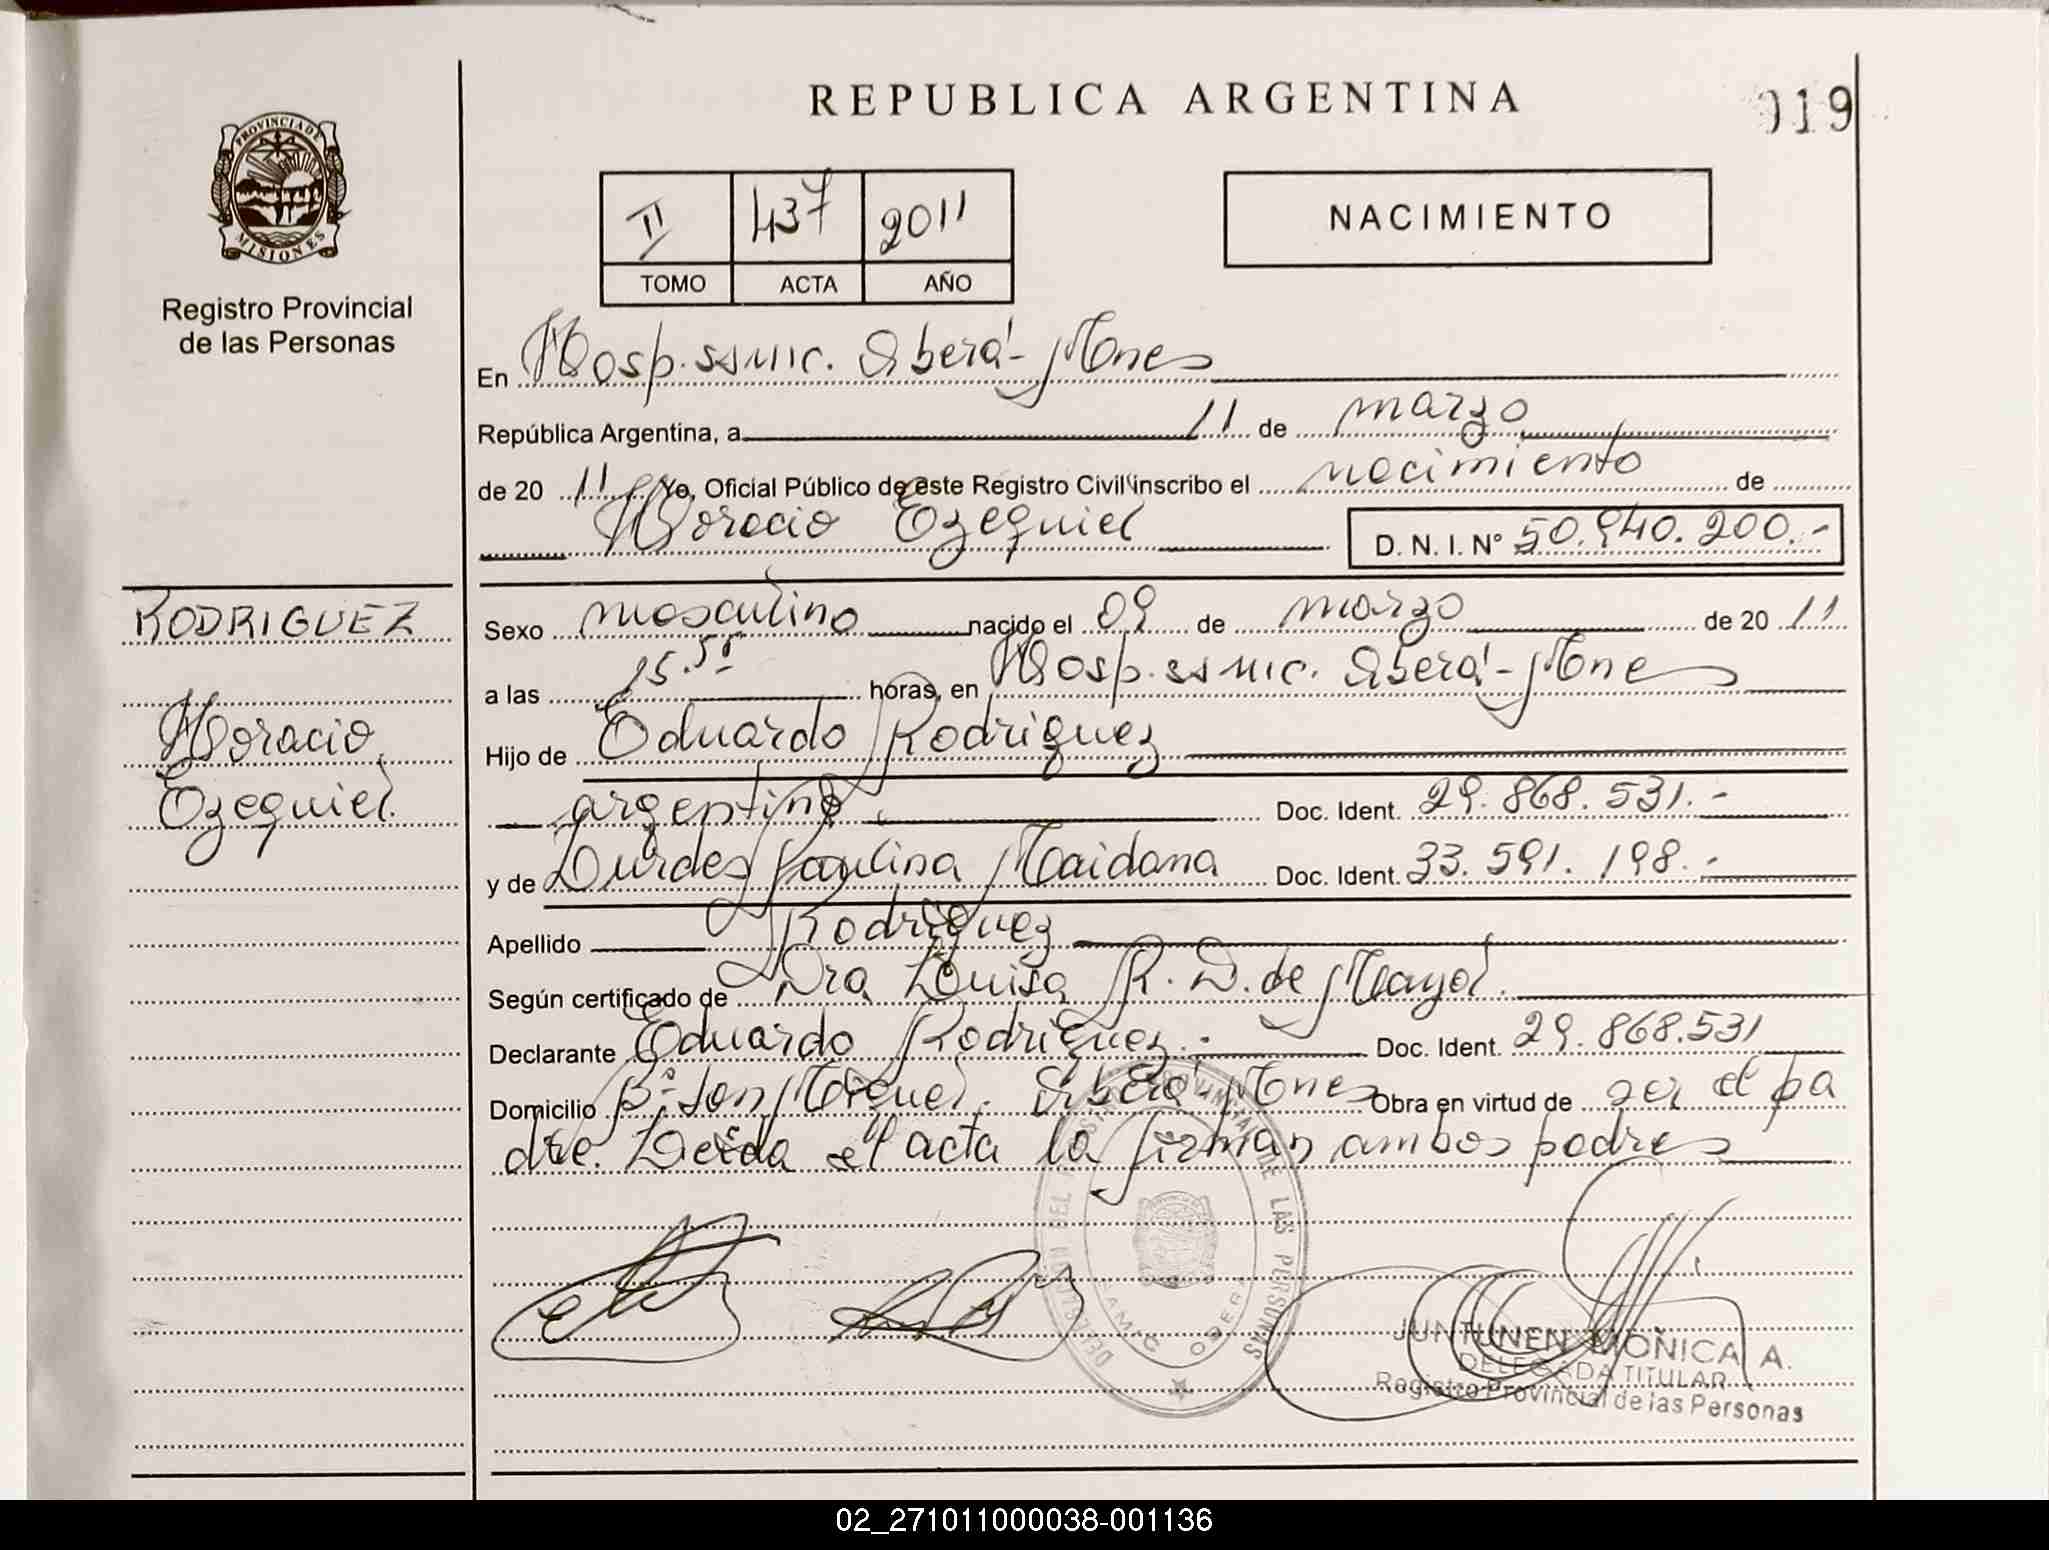 REPUBLICA ARGENTINA
019
PROVINCIA DE
MISIONES
Registro Provincial
de las Personas
II 437 2011
TOMO ACTA AÑO
NACIMIENTO
En Hosp. ssmic. Oberá - Mnes
República Argentina, a 11 de marzo
de 20 11 Yo, Oficial Público de este Registro Civil inscribo el nacimiento de
Horacio Ezequiel D. N. I. N° 50.940.200.-
RODRIGUEZ
Horacio
Ezequiel.
Sexo masculino nacido el 09 de marzo de 20 11
a las 15.55 horas, en Hosp. ssmic. Oberá - Mnes
Hijo de Eduardo Rodriguez
argentino Doc. Ident. 29.868.531.-
y de Lurdes Paulina Maidana Doc. Ident. 33.591.198.-
Apellido Rodriguez
Según certificado de Dra Luisa R. D. de Mayol.
Declarante Eduardo Rodriguez.- Doc. Ident. 29.868.531
Domicilio B° San Miguel. Oberá - Mnes Obra en virtud de ser el pa
dre. Leida el acta la firman ambos padres
JUNTUNEN MONICA A.
DELEGADA TITULAR
Registro Provincial de las Personas
02_271011000038-001136